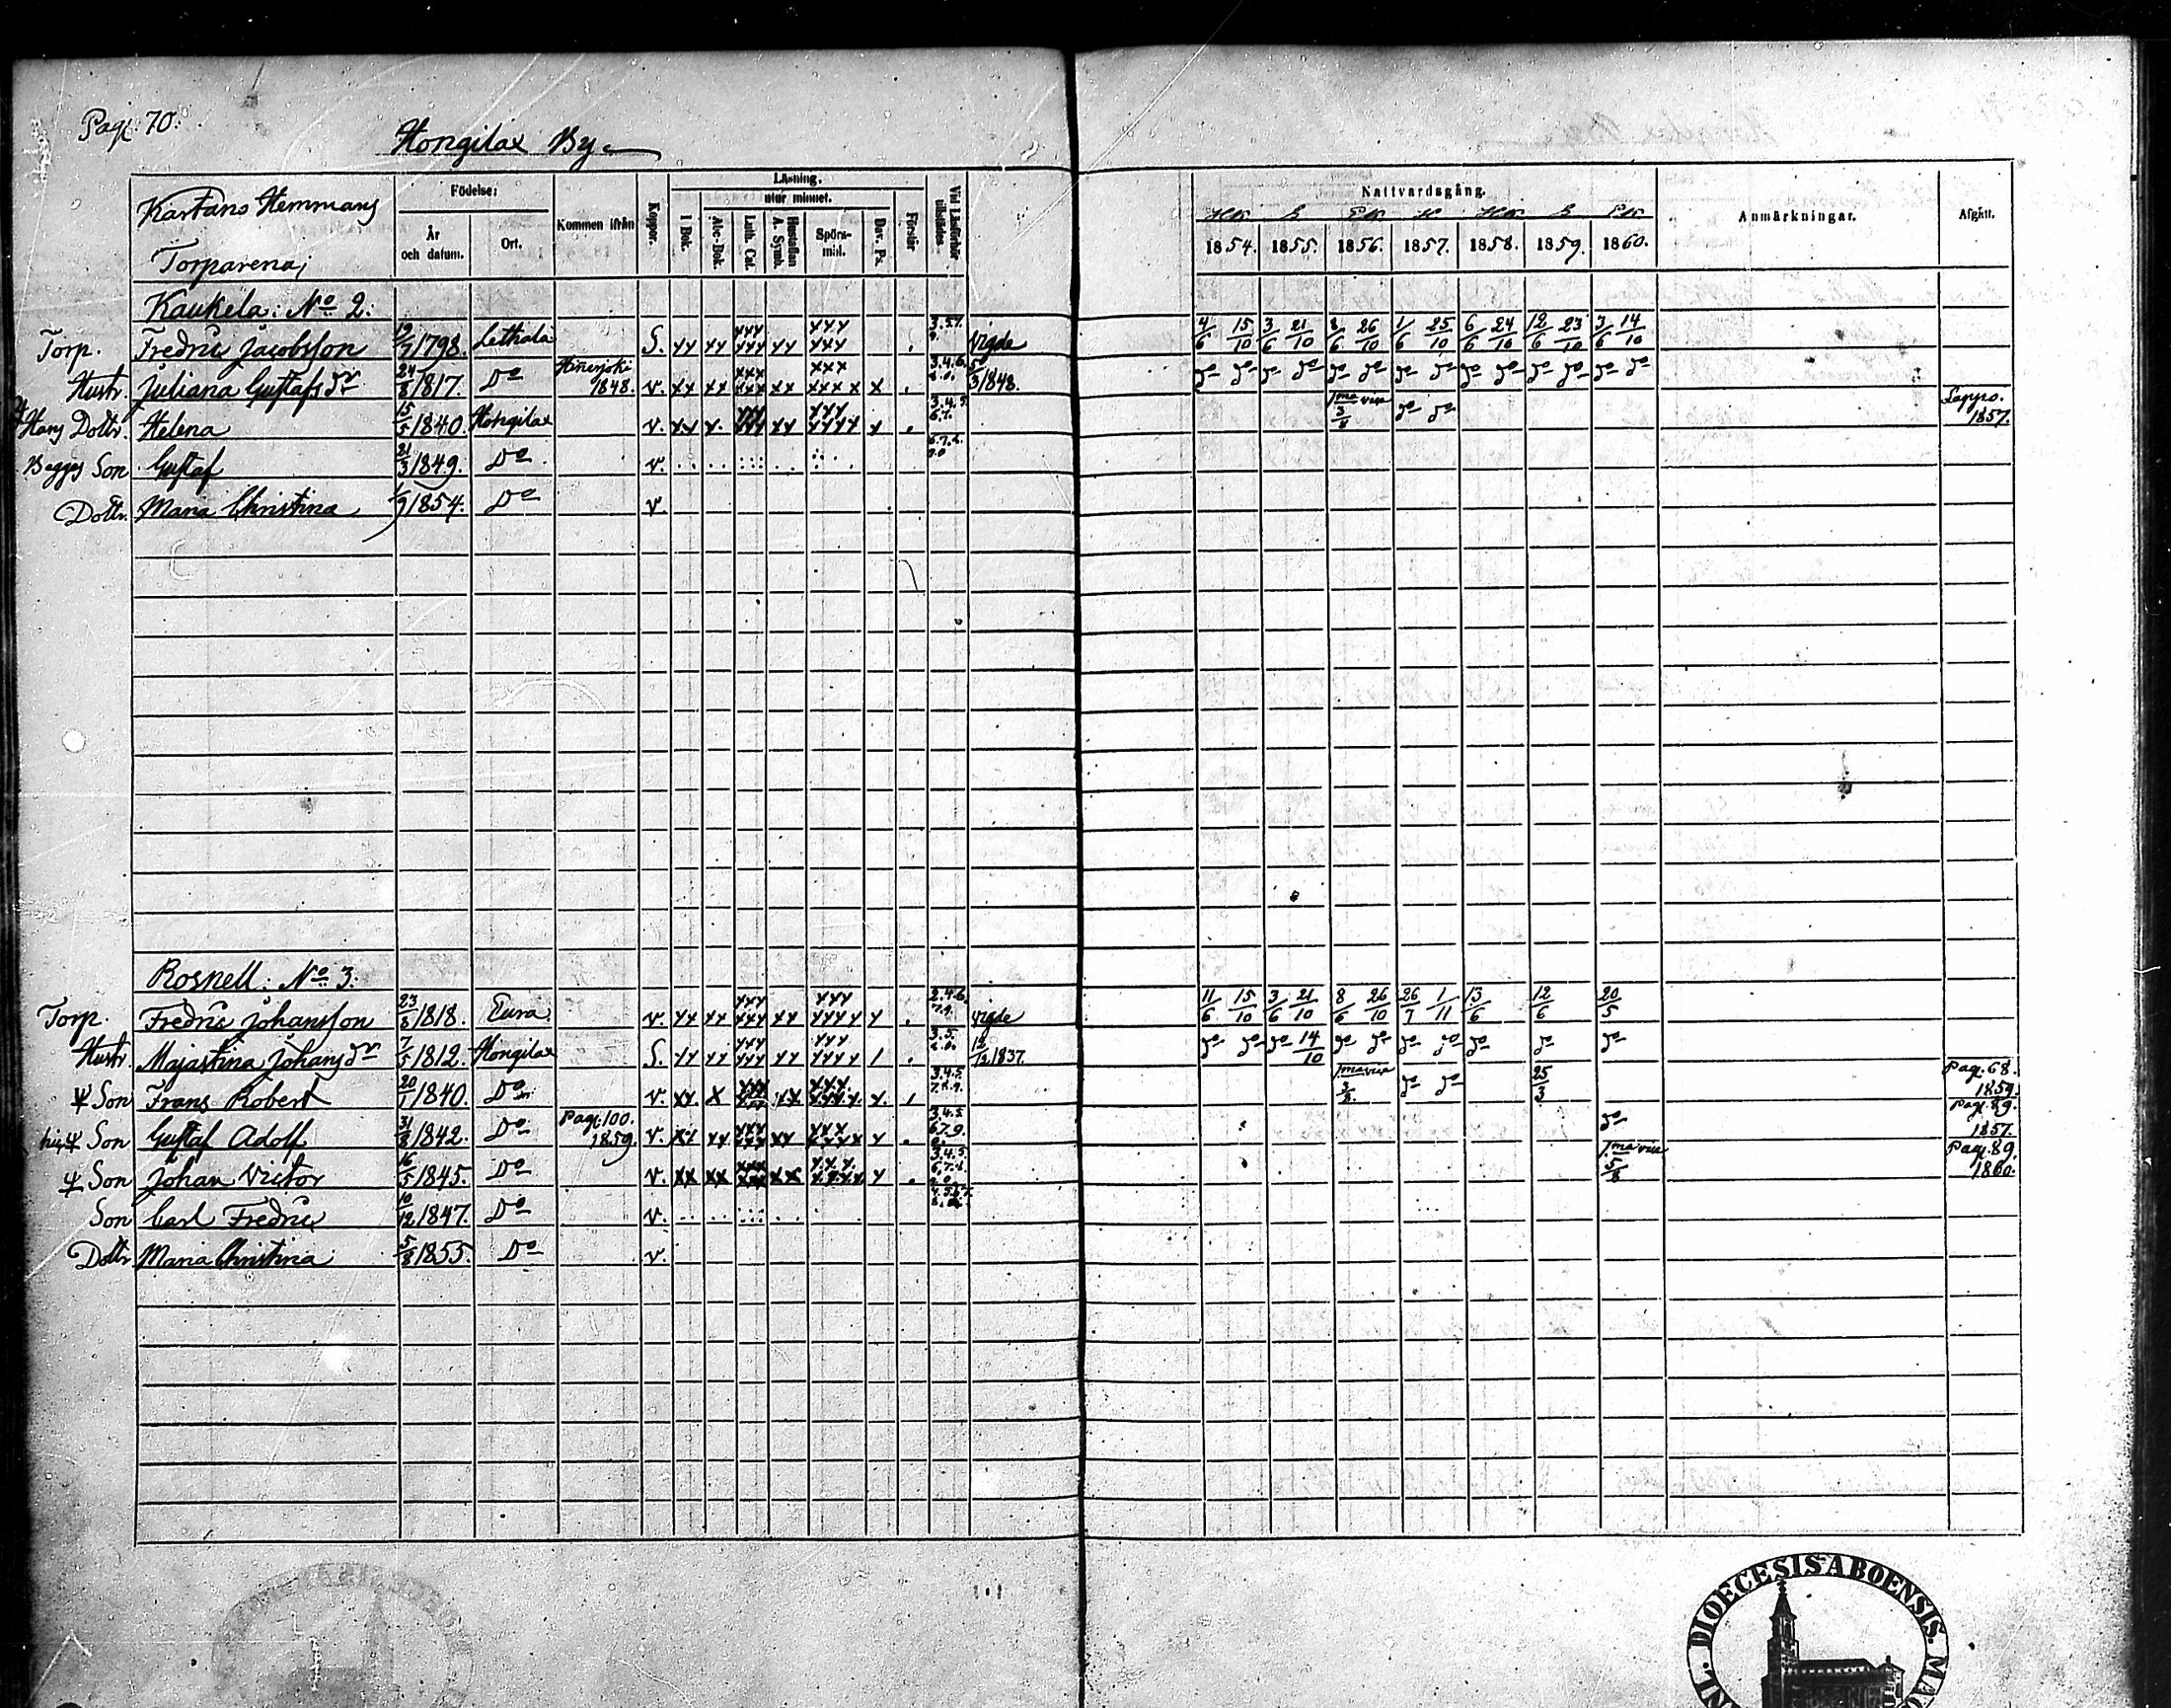 Pag. 70.
Hongilax By.
Kartano Hemmans
Torparena;
Födelse:
År och datum.
Ort.
Kommen ifrån
Koppor.
Läsning.
utur minnet.
I Bok.
Abc-Bok.
Luth. Cat.
Hustaflan A. Symb.
Spörs-mål.
Dav. Ps.
Förstår
Vid Läsförhör tillstädes.
Nattvardsgång.
1854. 1855. 1856. 1857. 1858. 1859. 1860.
Anmärkningar.
Afgått.
Kaukela: No 2:
Torp. Fredric Jacobsson 19/7 1798. Letthala S. xx xx xxx xxx xx xxx xxx vigde 4/6 15/10 3/6 21/10 8/6 26/10 1/6 25/10 6/6 24/10 12/6 23/10 3/6 14/10
Hustr. Juliana Gustafs dr 24/8 1817. Do Hinerjoki 1848. v. xx xx xxx xxx xx xxx xxx x x 5/3 1848. do do do do do do do do do do do do do do
Hans Dottr. Helena 15/5 1840. Hongilax v. xx x. xxx xxx xx xxx xxxx x 1ma vice 3/8 do do Lappo. 1857.
Begges Son Gustaf 21/3 1849. Do v.
Dottr. Maria Christina 1/9 1854. Do v.
Rosnell: No 3:
Torp. Fredric Johansson 23/8 1818. Eura v. xx xx xxx xxx xx xxx xxxx x 2.4.6. 7.9. vigde 11/6 15/10 3/6 21/10 8/6 26/10 26/7 1/11 13/6 12/6 20/5
Hustr. Majastina Johans dr 7/5 1812. Hongilax S. xx xx xxx xxx xx xxx xxxx 12/12 1837. do do do 14/10 do do do do do do do
Son Frans Robert 20/1 1840. Do v. xx. x xxx xx xxx x. 1ma vice 3/8 do do 25/3 Pag. 68. 1859.
Son Gustaf Adolf 31/8 1842. Do Pag. 100. 1859. v. xx xx xxx xxx xx xxx xxxx x 3.4.5. 6.7.9. do Pag. 89. 1857.
Son Johan Victor 16/5 1845. Do v. xx xx xxx xxx xx xxx xxxx x 1ma vice 5/8 Pag. 89. 1860.
Son Carl Fredric 10/12 1847. Do v.
Dottr Maria Christina 5/8 1855. Do v.
DIOECESIS ABOENSIS.